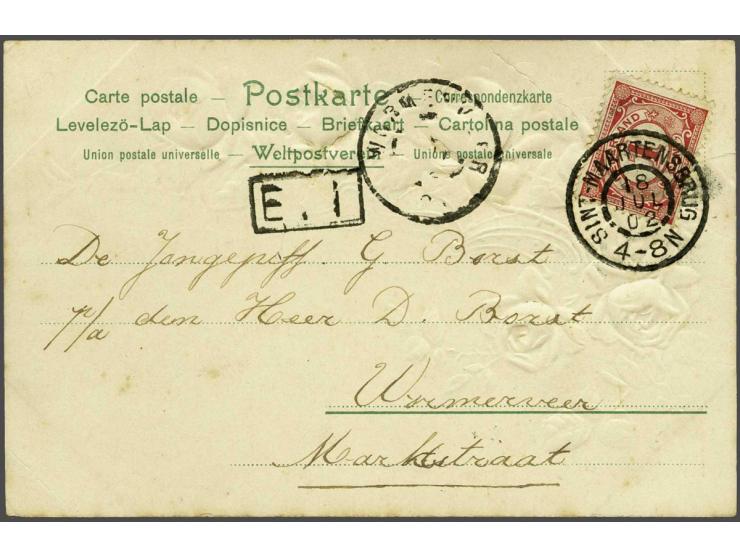 Carte postale – Postkarte – Correspondenzkarte
Levelező-Lap – Dopisnice – Briefkaart – Cartolina postale
Union postale universelle – Weltpostverein – Unione postale universale
SINT-MAARTENSBRUG
18
JUL
02
4-8N
De Jongejuff. G Borst
p/a den Heer D. Borst
Wormerveer
Marktstraat